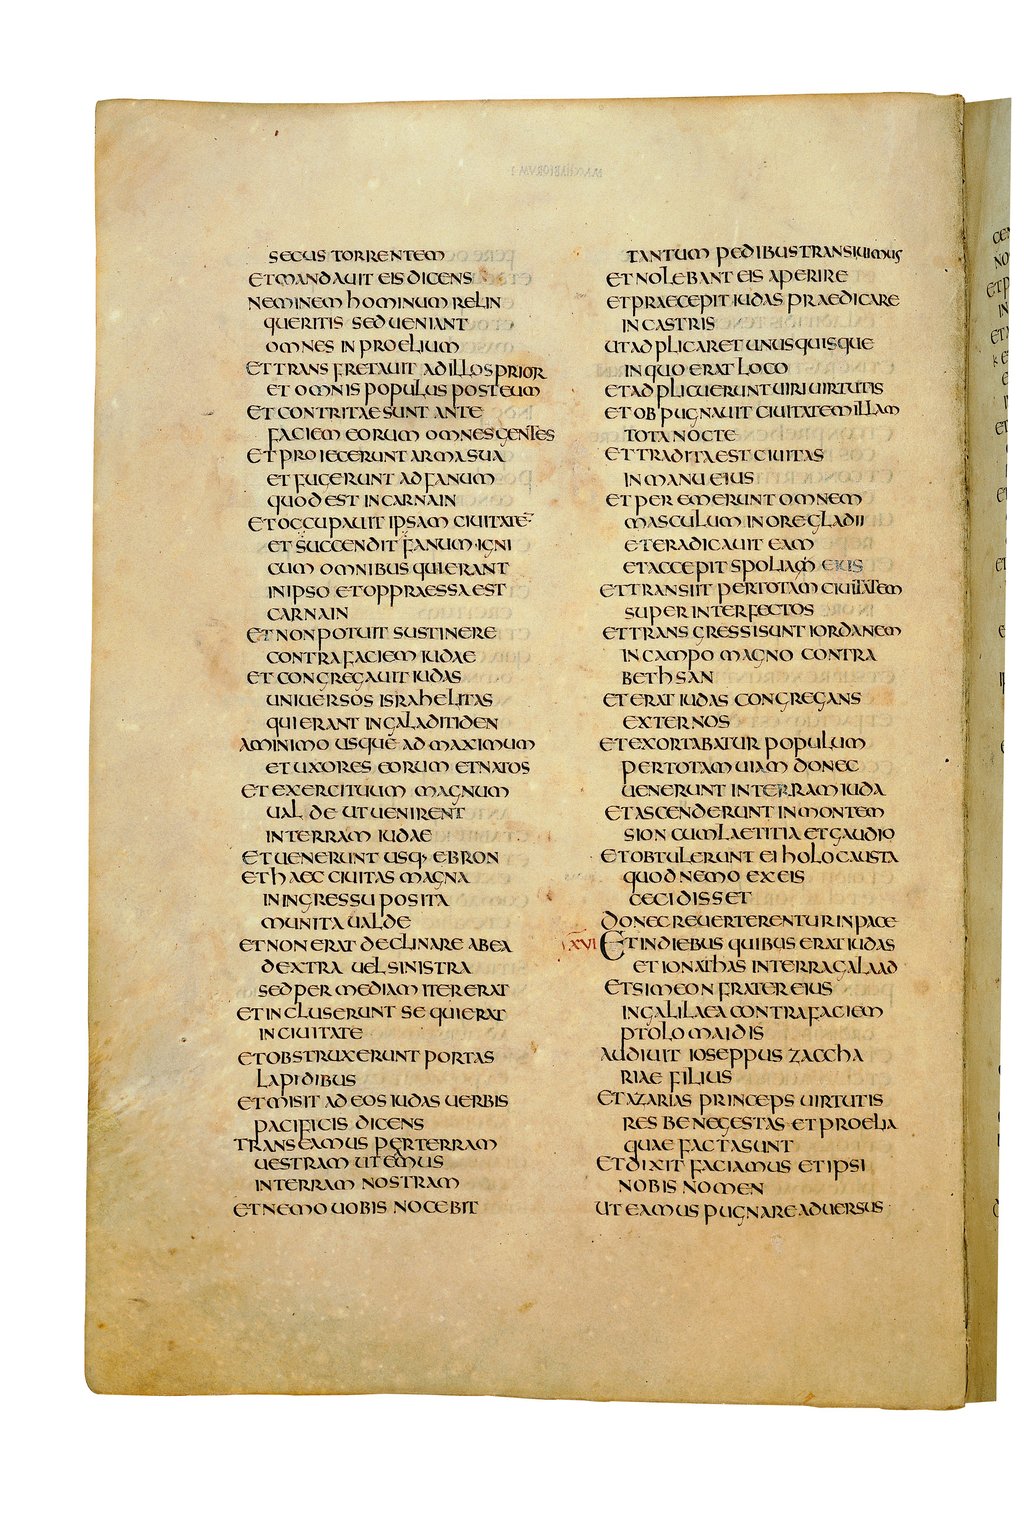 SECUS TORRENTEM
ET MANDAUIT EIS DICENS
NEMINEM HOMINUM RELIN
QUERITIS SED UENIANT
OMNES IN PROELIUM
ET TRANS FRETAUIT AD ILLOS PRIOR
ET OMNIS POPULUS POST EUM
ET CONTRITAE SUNT ANTE
FACIEM EORUM OMNES GENTES
ET PROIECERUNT ARMA SUA
ET FUGERUNT AD FANUM
QUOD EST IN CARNAIN
ET OCCUPAUIT IPSAM CIUITATĒ
ET SUCCENDIT FANUM IGNI
CUM OMNIBUS QUI ERANT
IN IPSO ET OPPRAESSA EST
CARNAIN
ET NON POTUIT SUSTINERE
CONTRA FACIEM IUDAE
ET CONGREGAUIT IUDAS
UNIUERSOS ISRAHELITAS
QUI ERANT IN GALADITIDEN
A MINIMO USQUE AD MAXIMUM
ET UXORES EORUM ET NATOS
ET EXERCITUUM MAGNUM
UALDE UT UENIRENT
IN TERRAM IUDAE
ET UENERUNT USQ· EBRON
ET HAEC CIUITAS MAGNA
IN INGRESSU POSITA
MUNITA UALDE
ET NON ERAT DECLINARE AB EA
DEXTRA UEL SINISTRA
SED PER MEDIAM ITER ERAT
ET INCLUSERUNT SE QUI ERAT
IN CIUITATE
ET OBSTRUXERUNT PORTAS
LAPIDIBUS
ET MISIT AD EOS IUDAS UERBIS
PACIFICIS DICENS
TRANSEAMUS PER TERRAM
UESTRAM UT EMUS
IN TERRAM NOSTRAM
ET NEMO UOBIS NOCEBIT
TANTUM PEDIBUS TRANSIUIMUS
ET NOLEBANT EIS APERIRE
ET PRAECEPIT IUDAS PRAEDICARE
IN CASTRIS
UT ADPLICARET UNUSQUISQUE
IN QUO ERAT LOCO
ET ADPLICUERUNT UIRI UIRTUTIS
ET OBPUGNAUIT CIUITATEM ILLAM
TOTA NOCTE
ET TRADITA EST CIUITAS
IN MANU EIUS
ET PEREMERUNT OMNEM
MASCULUM IN ORE GLADII
ET ERADICAUIT EAM
ET ACCEPIT SPOLIA EIUS
ET TRANSIIT PER TOTAM CIUITATEM
SUPER INTERFECTOS
ET TRANSGRESSI SUNT IORDANEM
IN CAMPO MAGNO CONTRA
BETHSAN
ET ERAT IUDAS CONGREGANS
EXTERNOS
ET EXORTABATUR POPULUM
PER TOTAM UIAM DONEC
UENERUNT IN TERRAM IUDA
ET ASCENDERUNT IN MONTEM
SION CUM LAETITIA ET GAUDIO
ET OBTULERUNT EI HOLOCAUSTA
QUOD NEMO EX EIS
CECIDISSET
DONEC REUERTERENTUR IN PACE
XVI ET IN DIEBUS QUIBUS ERAT IUDAS
ET IONATHAS IN TERRA GALAAD
ET SIMEON FRATER EIUS
IN GALILAEA CONTRA FACIEM
PTOLOMAIDIS
AUDIUIT IOSEPPUS ZACCHA
RIAE FILIUS
ET AZARIAS PRINCEPS UIRTUTIS
RES BENE GESTAS ET PROELIA
QUAE FACTA SUNT
ET DIXIT FACIAMUS ET IPSI
NOBIS NOMEN
UT EAMUS PUGNARE ADUERSUS